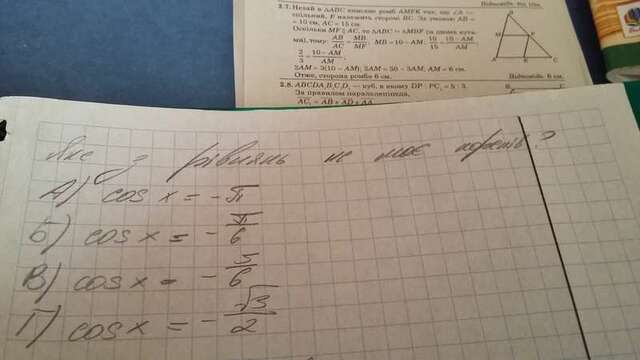 Відповідь: від. 10п.
2.7. Нехай в △ABC вписано ромб AMFK так, що ∠A —
спільний, F належить стороні BC. За умовою AB =
= 10 см, AC = 15 см.
Оскільки MF ∥ AC, то △ABC ∾ △MBF (за двома кута-
ми), тому: AB/AC = MB/MF; MB = 10 – AM; 10/15 = 10–AM/AM;
2/3 = 10–AM/AM;
2AM = 3(10 – AM); 2AM = 30 – 3AM; AM = 6 см.
Отже, сторона ромба 6 см.
Відповідь: 6 см.
2.8. ABCDA₁B₁C₁D₁ — куб, в якому DP : PC₁ = 5 : 3.
За правилом паралелепіпеда,
AC₁ = AB + AD + AA₁
B
M
F
A
K
C
Яке з рівнянь не має коренів?
А) cos x = -π
Б) cos x = -π/6
В) cos x = -5/6
Г) cos x = -√3/2